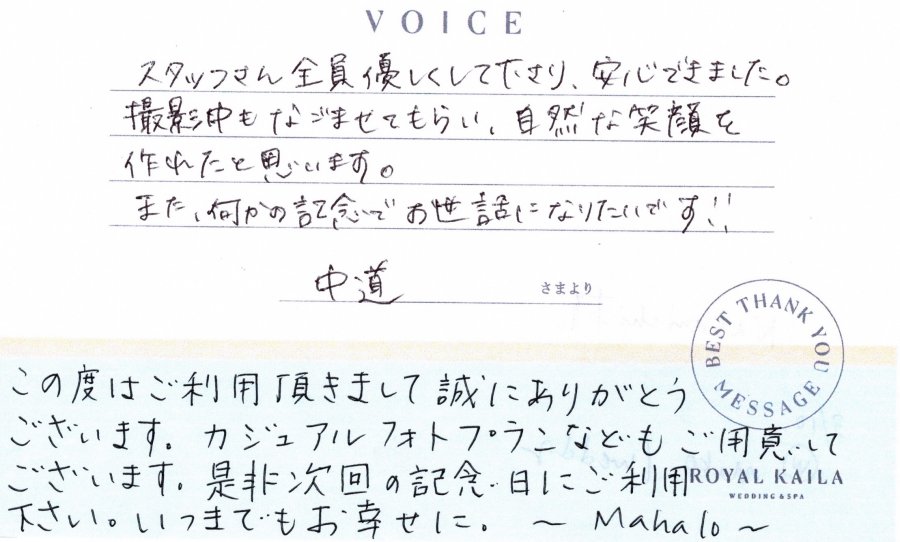 VOICE
スタッフさん全員優しくして下さり、安心できました。
撮影中もなごませてもらい、自然な笑顔を
作れたと思います。
また、何かの記念でお世話になりたいです!!
中道 さまより
BEST THANK YOU MESSAGE
この度はご利用頂きまして誠にありがとう
ございます。カジュアルフォトプランなどもご用意して
ございます。是非次回の記念日にご利用
ROYAL KAILA
WEDDING & SPA
下さい。いつまでもお幸せに。 ~ Mahalo ~